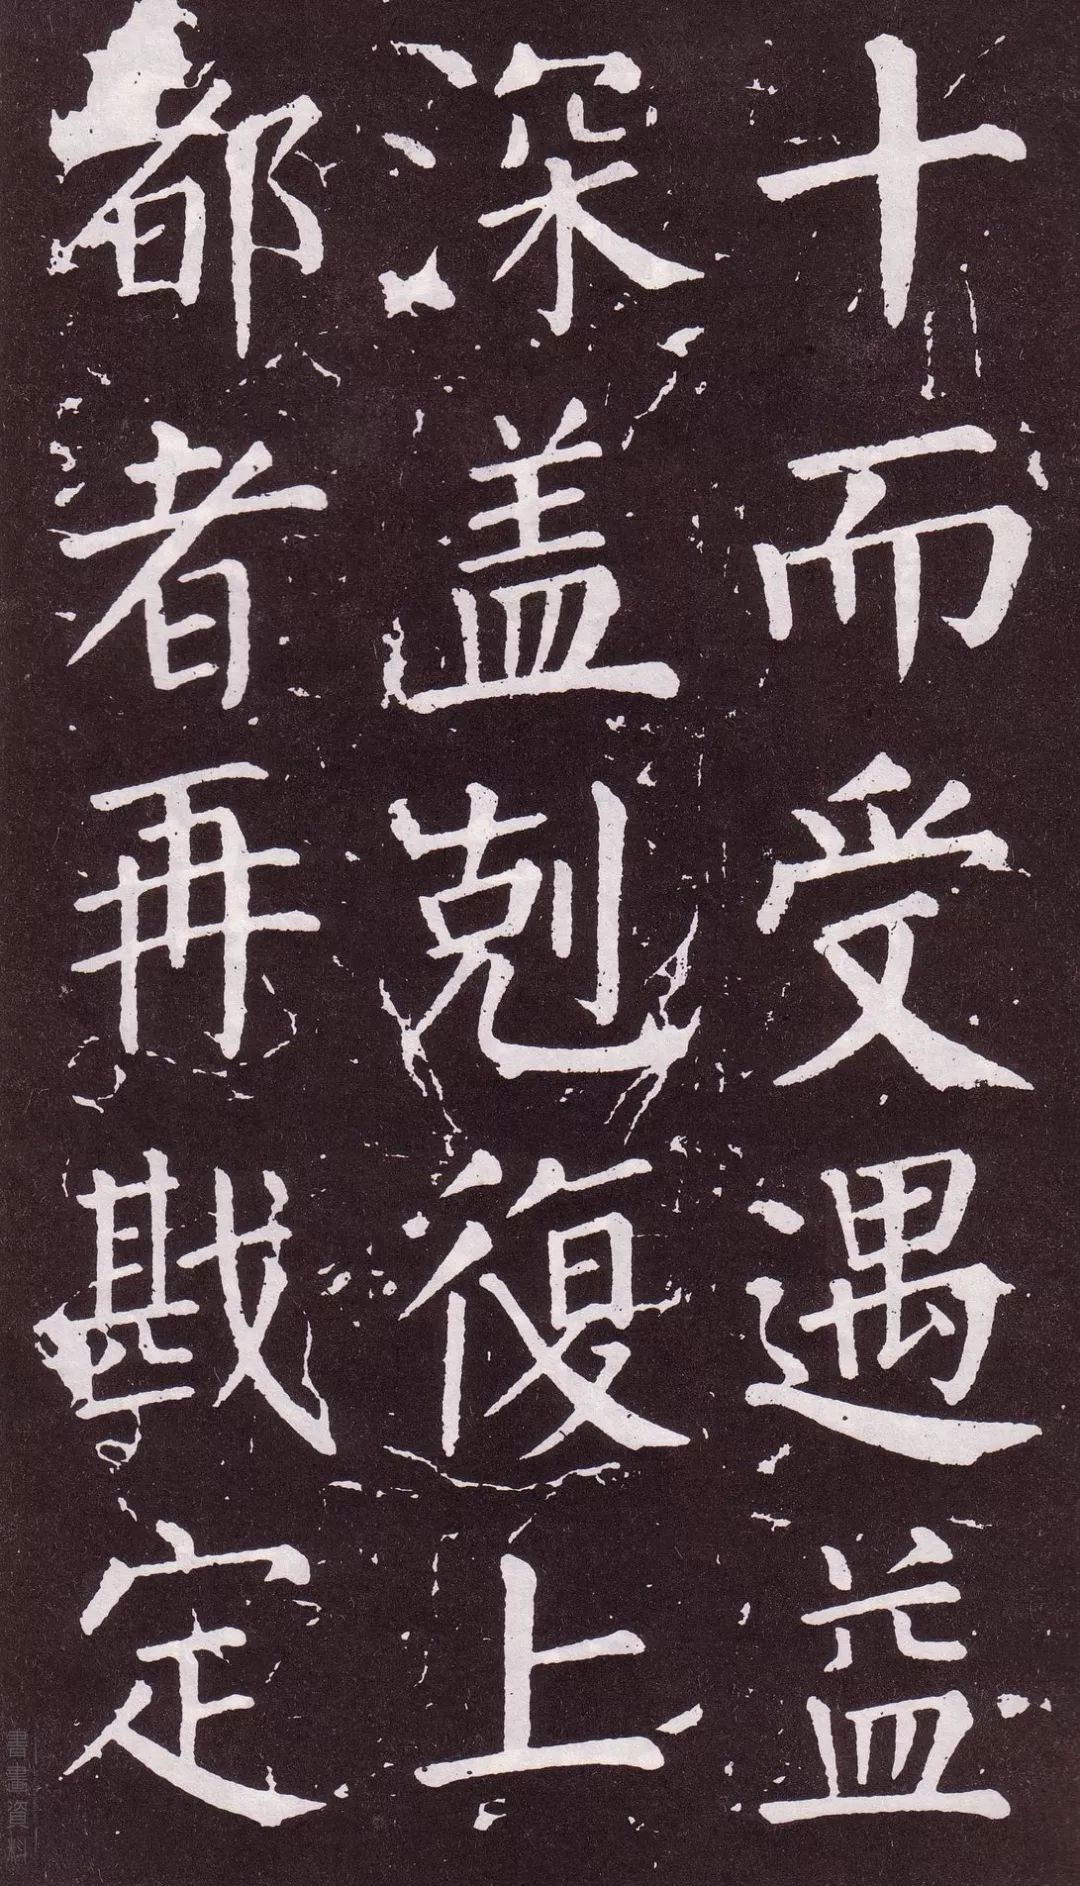 十而受遇益
深盖剋復上
都者再戡定
書畫資料